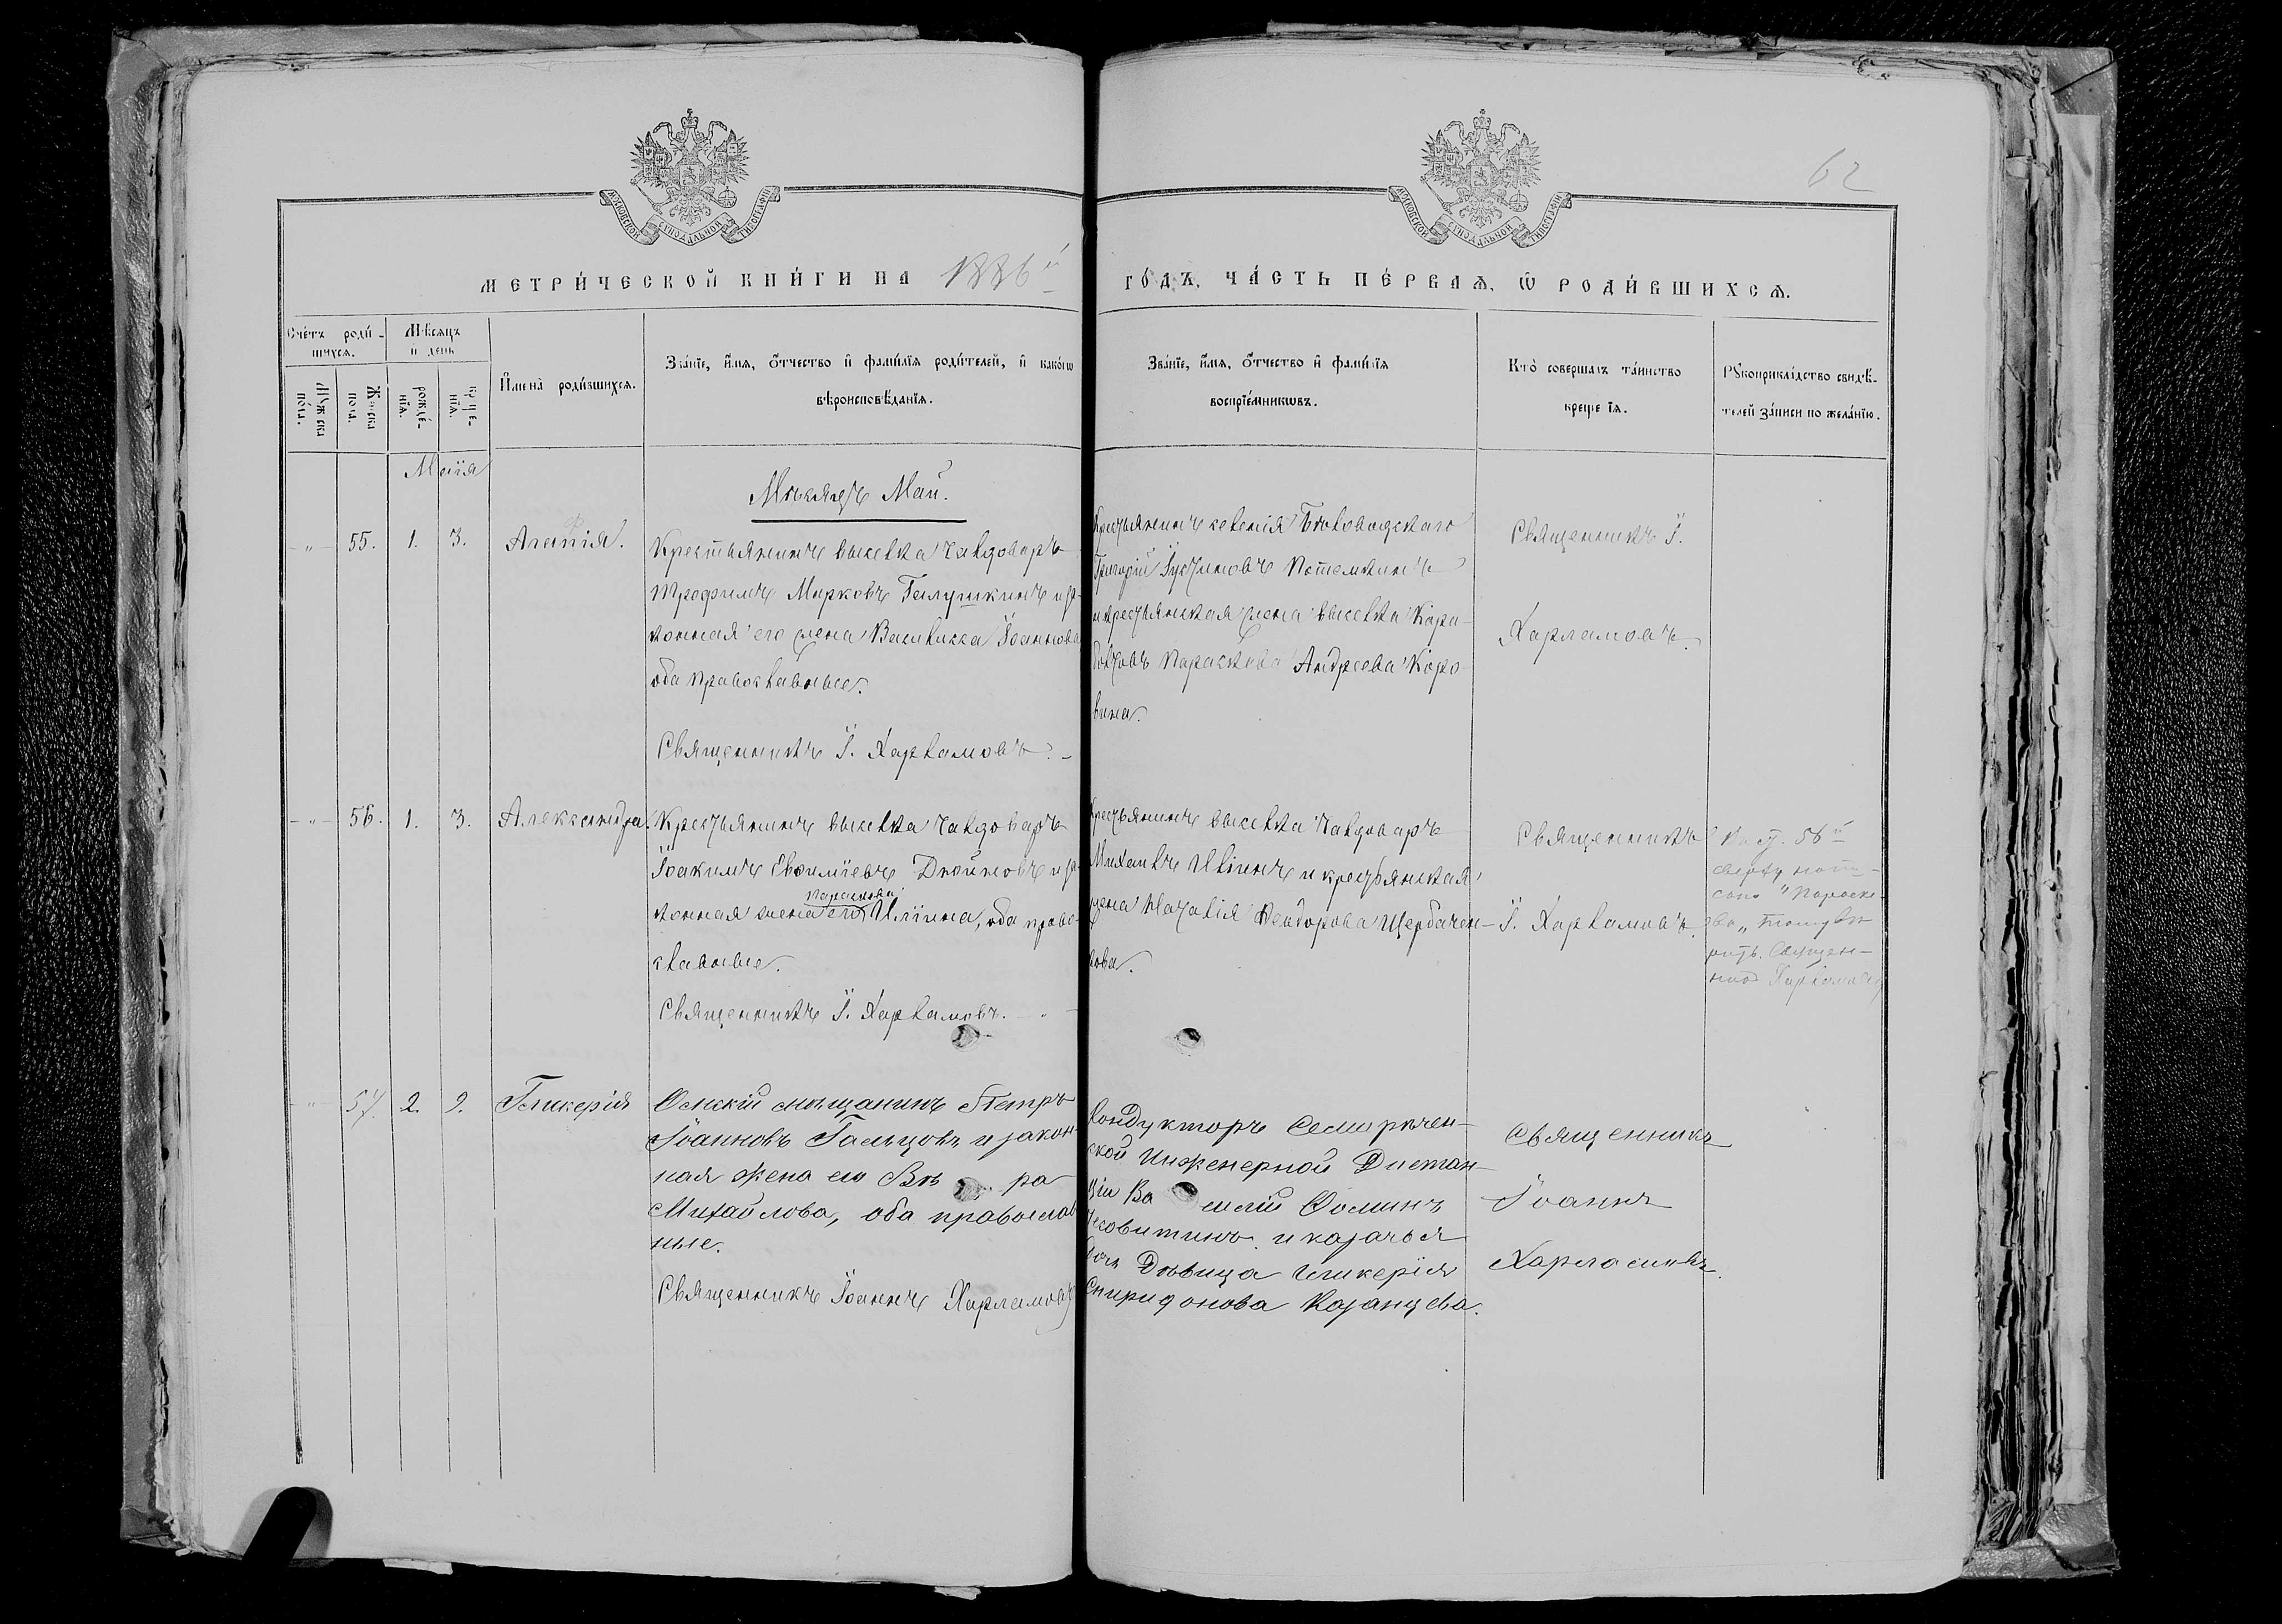 62
МОСКОВСКОЙ СѴНОДАЛЬНОЙ ТИПОГРАФІИ
МОСКОВСКОЙ СѴНОДАЛЬНОЙ ТИПОГРАФІИ
МЕТРИ́ЧЕСКОЙ КНИ́ГИ НА 1886й
ГО́ДЪ, ЧА́СТЬ ПЕ́РВАѦ, Ѡ҆ РОДИ́ВШИХСѦ.
Сче́тъ роди́-
вшихся.
Мѣсяцъ
и день
Мужска
пола.
Женска
пола.
рожде́-
нїя.
креще-
нїя.
И҆мена̀ роди́вшихся.
Зва́нїе, и҆́мя, ѻ҆́тчество и҆ фами́лїя роди́телей, и҆ како́гѡ
вѣроисповѣ́данїя.
Зва́нїе, и҆́мя, ѻ҆́тчество и҆ фами́лїя
воспрїе́мникѡвъ.
Кто̀ соверша́лъ та́инство
креще їя.
Рꙋкоприкла́дство свидѣ́-
телей за́писи по жела́нїю.
Маія
Мѣсяцъ Май.
55. 1. 3. Агапія.
Крестьянинъ выселка Чалдоваръ
Трофимъ Марковъ Галушкинъ и за-
конная его жена Василисса Іоаннова
оба православные.
Священникъ І. Харламовъ.
Крестьянинъ селенія Бѣловодскаго
Григорій Іустиновъ Потемкинъ
и крестьянская жена выселка Кара-
Параскева Андреева Коро-
вина.
Священникъ І.
Харламовъ.
56. 1. 3. Александра.
Крестьянинъ выселка Чалдоваръ
Іоакимъ Евфиміевъ и за-
Параскева
конная жена его Иліина, оба право-
славные.
Священникъ І. Харламовъ.
Крестьянинъ выселка Чалдоваръ
Михаилъ Иліинъ и крестьянская
жена Наталія Феодорова Щербачен-
кова.
Священникъ
І. Харламовъ.
По ст. 56й
сверху напи-
сано "Параске-
ва"
Священ-
никъ Харламовъ
57. 2. 9. Гликерія
Омскій мѣщанинъ Петръ
Іоанновъ Гальцовъ и закон-
ная жена его Вѣ ра
Михайлова, оба православ
ные.
Священникъ Іоаннъ Харламовъ
Кондукторъ Семирѣчен-
ской Инженерной Дистан-
ціи Ва силій Ѳоминъ
и казачья
дочь Дѣвица Гликерія
Спиридонова Казанцева.
Священникъ
Іоаннъ
Харламовъ.